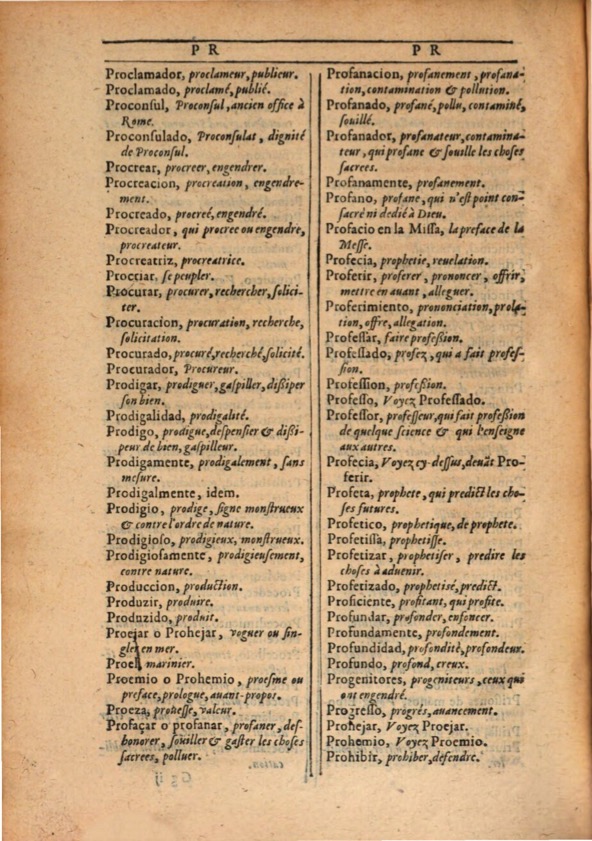 P R
Proclamador, proclameur, publieur.
Proclamado, proclamé, publié.
Proconsul, Proconsul, ancien office à
Rome.
Proconsulado, Proconsulat, dignité
de Proconsul.
Procrear, procreer, engendrer.
Procreacion, procreation, engendre-
ment.
Procreado, procreé, engendré.
Procreador, qui procree ou engendre,
procreateur.
Procreatriz, procreatrice.
Procriar, se peupler.
Procurar, procurer, rechercher, solici-
ter.
Procuracion, procuration, recherche,
solicitation.
Procurado, procuré, recherché, solicité.
Procurador, Procureur.
Prodigar, prodiguer, gaſpiller, diſſiper
ſon bien.
Prodigalidad, prodigalité.
Prodigo, prodigue, deſpenſier & diſſi-
peur de bien, gaſpilleur.
Prodigamente, prodigalement, ſans
meſure.
Prodigalmente, idem.
Prodigio, prodige, ſigne monſtrueux
& contre l'ordre de nature.
Prodigioſo, prodigieux, monſtrueux.
Prodigioſamente, prodigieuſement,
contre nature.
Produccion, production.
Produzir, produire.
Produzido, produit.
Proejar o Prohejar, voguer ou ſin-
gler en mer.
Proel, marinier.
Proemio o Prohemio, proeſme ou
preface, prologue, auant-propos.
Proeza, proüeſſe, valeur.
Profaçar o profanar, profaner, deſ-
honorer, ſoüiller & gaſter les choſes
ſacrees, polluer.
P R
Profanacion, profanement, profana-
tion, contamination & pollution.
Profanado, profané, pollu, contaminé,
ſouillé.
Profanador, profanateur, contamina-
teur, qui profane & ſouille les choſes
ſacrees.
Profanamente, profanement.
Profano, profane, qui n'eſt point con-
ſacré ni dedié à Dieu.
Profacio en la Miſſa, la preface de la
Meſſe.
Profecia, prophetie, reuelation.
Proferir, proferer, prononcer, offrir,
mettre en auant, alleguer.
Proferimiento, prononciation, prola-
tion, offre, allegation.
Profeſſar, faire profeſſion.
Profeſſado, profez, qui a fait profeſ-
ſion.
Profeſſion, profeſſion.
Profeſſo, Voyez Profeſſado.
Profeſſor, profeſſeur, qui fait profeſſion
de quelque ſcience & qui l'enſeigne
aux autres.
Profecia, Voyez cy-deſſus, deuāt Pro-
ferir.
Profeta, prophete, qui predict les cho-
ſes futures.
Profetico, prophetique, de prophete.
Profetiſſa, prophetiſſe.
Profetizar, prophetiſer, predire les
choſes à aduenir.
Profetizado, prophetisé, predict.
Proficiente, profitant, qui profite.
Profundar, profonder, enfoncer.
Profundamente, profondement.
Profundidad, profondité, profondeur.
Profundo, profond, creux.
Progenitores, progeniteurs, ceux qui
ont engendré.
Progreſſo, progrés, auancement.
Prohejar, Voyez Proejar.
Prohemio, Voyez Proemio.
Prohibir, prohiber, defendre.